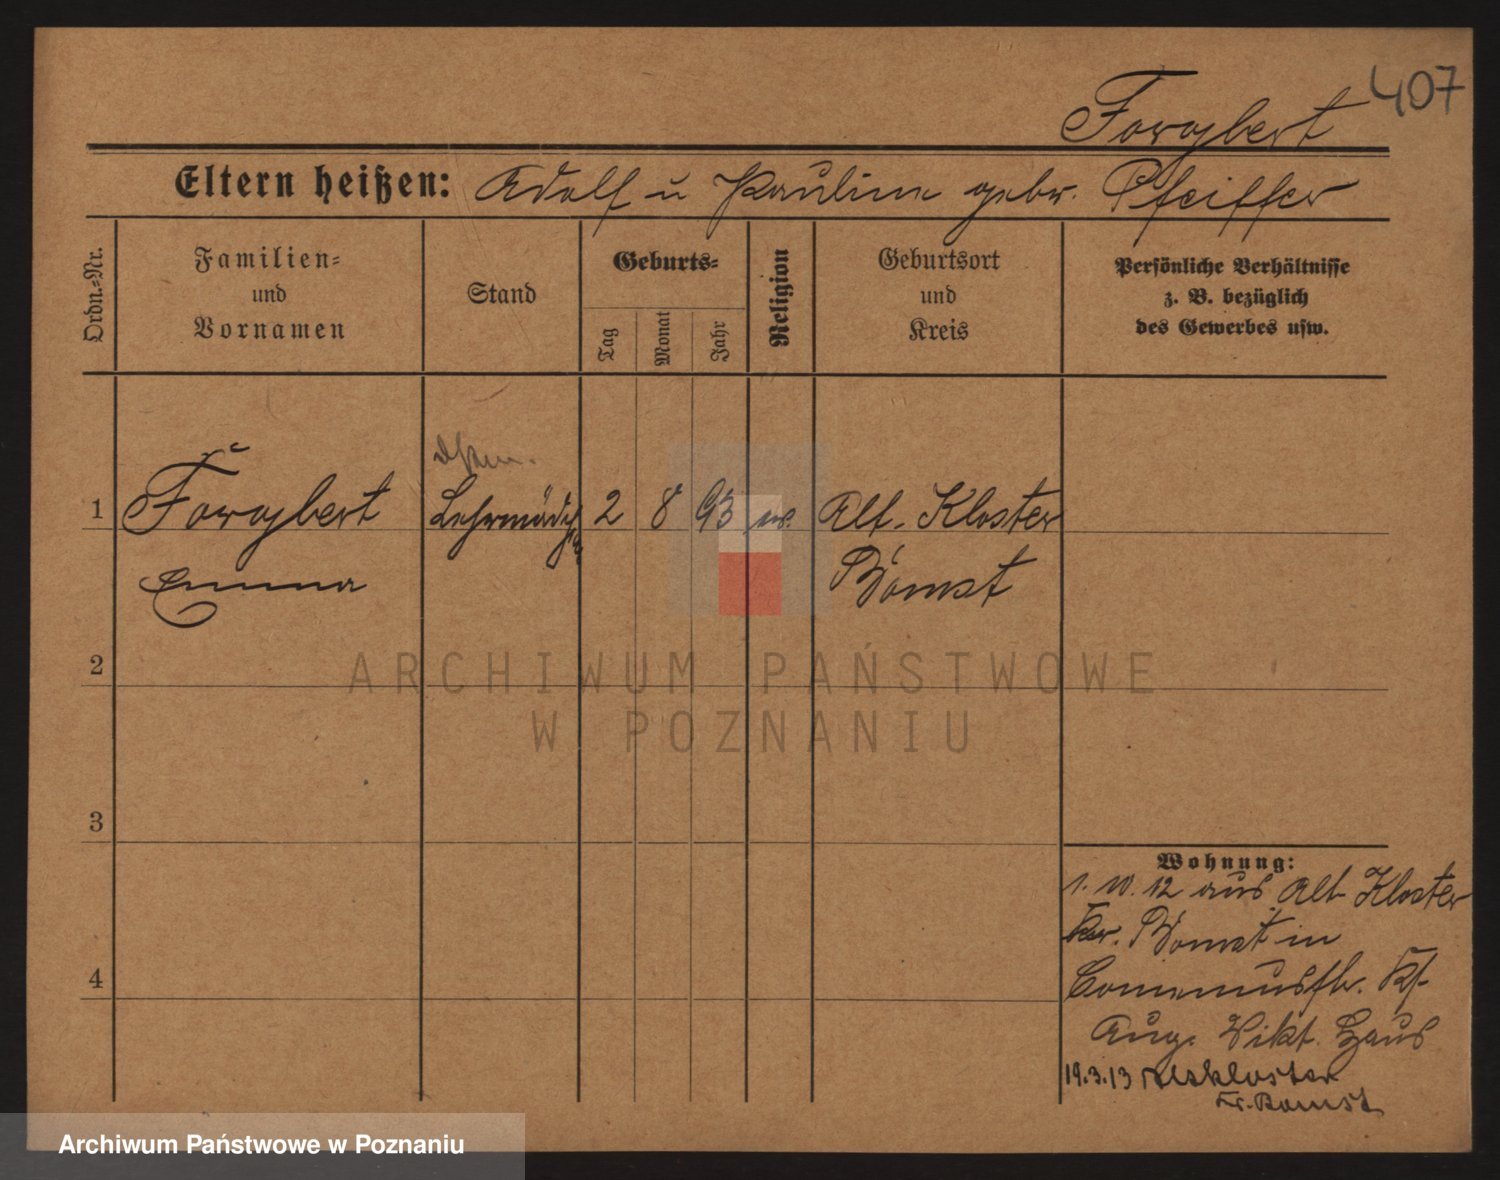 407
Forgbert
Eltern heißen: Adolf u Pauline gebr. Pfeiffer
Ordn.-Nr.
Familien-
und
Vornamen
Stand
Geburts-
Tag
Monat
Jahr
Religion
Geburtsort
und
Kreis
Persönliche Verhältnisse
z. B. bezüglich
des Gewerbes usw.
1 Forgbert Lehrmädch 2 8 93 Alt-Kloster
Emma Bomst
2
3
4
Wohnung:
1. 10. 12 aus Alt Kloster
Kr. Bomst in
Aug. Vikt. Haus
19.3.13 Altkloster
Kr. Bomst
ARCHIWUM PAŃSTWOWE
W POZNANIU
Archiwum Państwowe w Poznaniu